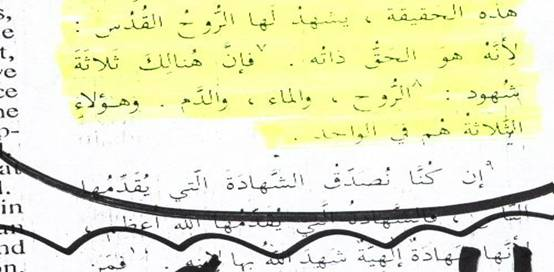 هذه الحقيقة ، يشهدُ لَها الرُّوحُ القُدُس :
لأنَّهُ هوَ الحَقُّ ذاتُه . ٧ فإنَّ هُنالِكَ ثَلاثَةَ
شُهود : ٨ الرُّوح ، والماء ، والدَّم . وهؤلاءِ
الثَّلاثةُ هُم في الواحد .
٩ إن كُنَّا نُصَدِّقُ الشَّهادَةَ الَّتي يُقَدِّمُها
النَّاس ، فالشَّهادةُ الَّتي يُقَدِّمُها الله أعظَم ،
لأنَّها شَهادَةٌ إلَهِيَّةٌ شَهِدَ اللهُ بها لابنِه . ١٠ فمَن
s,
e
t,
ve
ce
ne
p-
l.
at
d.
in
an
nd
on.